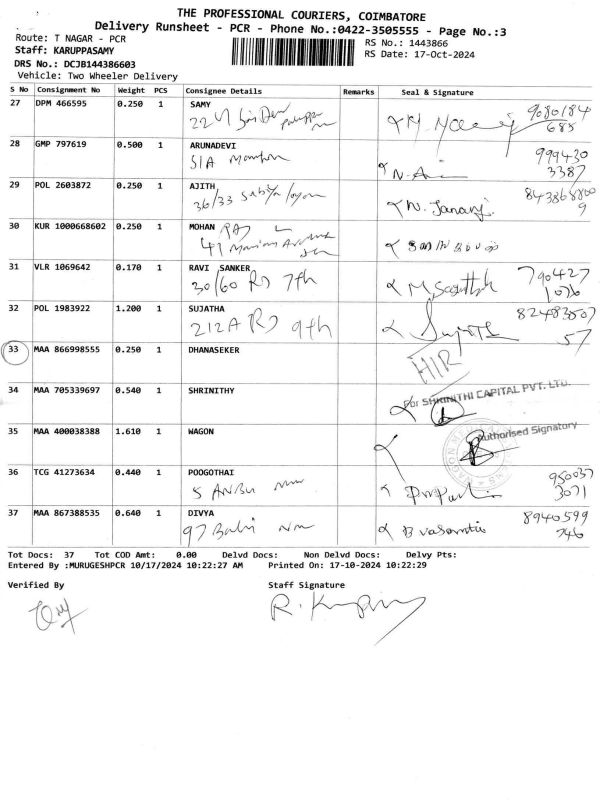 THE PROFESSIONAL COURIERS, COIMBATORE
Delivery Runsheet - PCR - Phone No.:0422-3505555 - Page No.:3
Route: T NAGAR - PCR
RS No.: 1443866
Staff: KARUPPASAMY
RS Date: 17-Oct-2024
DRS No.: DCJB144386603
Vehicle: Two Wheeler Delivery
S No Consignment No Weight PCS Consignee Details Remarks Seal & Signature
27 DPM 466595 0.250 1 SAMY 9080184
22 685
28 GMP 797619 0.500 1 ARUNADEVI 999430
51A 3387
29 POL 2603872 0.250 1 AJITH 843868800
36/33 N. Janani 9
30 KUR 1000668602 0.250 1 MOHAN RAJ
41
31 VLR 1069642 0.170 1 RAVI SANKER 790427
30/60 RD 7th 1076
32 POL 1983922 1.200 1 SUJATHA 82483507
212A RD 9th 57
33 MAA 866998555 0.250 1 DHANASEKER
34 MAA 705339697 0.540 1 SHRINITHY For SHRINITHI CAPITAL PVT. LTD.
35 MAA 400038388 1.610 1 WAGON Authorised Signatory
36 TCG 41273634 0.440 1 POOGOTHAI 950037
5 ANBU 3071
37 MAA 867388535 0.640 1 DIVYA 8940599
97 B Vasantha 746
Tot Docs: 37 Tot COD Amt: 0.00 Delvd Docs: Non Delvd Docs: Delvy Pts:
Entered By :MURUGESHPCR 10/17/2024 10:22:27 AM Printed On: 17-10-2024 10:22:29
Verified By Staff Signature